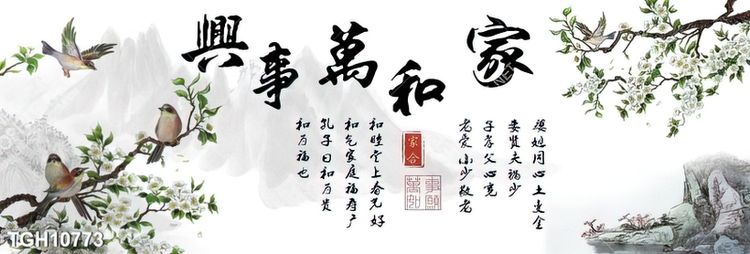 家和萬事興
婆媳同心土变金
妻贤夫祸少
子孝父心宽
老爱小少敬老
家合
和睦堂上春光好
和气家庭福寿广
孔子曰和为贵
和为福也
TGH10773